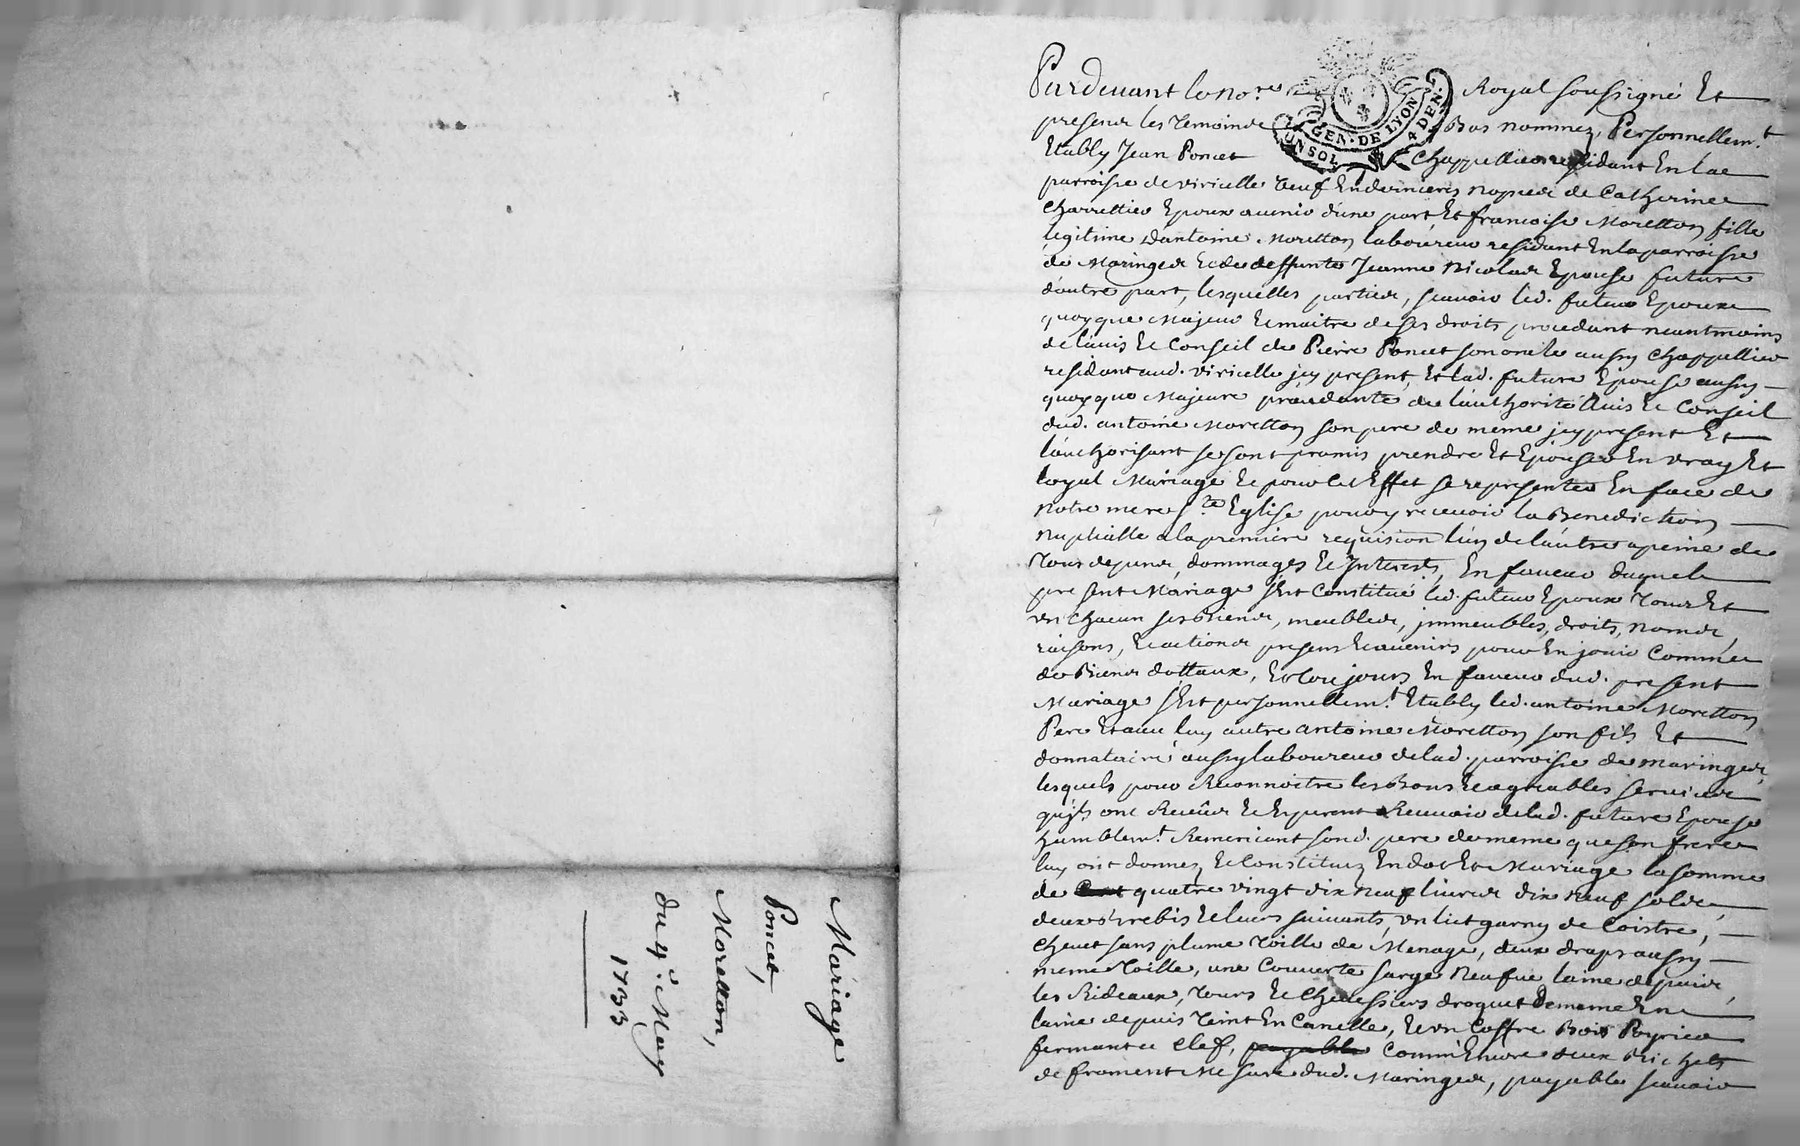 Pardevant le no.re Royal soussigné Et
presens les temoins Bas nommez, Personnellem.t
Etably Jean Poncet Chappellier residant En lae
parroisse de viricelle veuf En dernieres nopces de Catherine
Charrettier Epoux avenir d'une part Et francoise Moretton fille
legitime d'antoine Moretton laboureur residant En la parroisse
de Maringes Et de deffunte Jeanne Nicolas Epouse future
d'autre part, lesquelles parties, scavoir led. futur Epoux
quoyque Majeur Et maitre de ses droits procedant neantmoins
de l'avis Et Conseil de Pierre Poncet son oncle aussy Chappellier
residant aud. viricelle jcy present, Et lad. future Epouse aussy
quoyque Majeure procedante de l'authorité Avis Et Conseil
dud. antoine Moretton son pere de meme jcy present Et
l'authorisant se sont promis prendre Et Epouser En vray Et
loyal Mariage Et pour cet Effet se representer En face de
notre mere s.te Eglise pour y recevoir la Benediction
nuptialle a la premiere requision l'un de l'autre a peine de
tous depens, dommages Et Interests, En faveur duquel
present Mariage s'Est Constitué led. futur Epoux tous Et
un chacun ses biens, meubles, jmmeubles, droits, noms,
raisons, Et actions presens Et avenirs pour En jouir Comme
de Biens dottaux, Et toujours En faveur dud. present
Mariage s'Est personnellem.t Etably led. antoine Moretton
Pere Et avec luy autre antoine Moretton son fils Et
donnataire aussy laboureur de lad. parroisse de maringes,
lesquels pour Reconnoitre les Bons Et agreables services
qu'jls ont Receûs Et Esperent Recevoir de lad. future Epouse
humblem.t Remerciant sond. pere de meme que son frere
luy ont donnez Et Constituez En dot Et Mariage la somme
de Cent quatre vingt dix neuf livres dix neuf solds,
deux brebis Et leurs suivants, un lict garny de Coistre,
Chevet sans plume toille de Menage, deux draps aussy
meme toille, une Couverte sarge neufve laine de pais,
les Rideaux, tours Et Chevessiers droguet de meme En
laine de pais teint En Canelle, Et un Coffre Bois
fermant a Clef, payable Comm'Encore deux Bichets
de froment Mesure dud. Maringes, payable scavoir
GEN. DE LYON
4 DEN.
UN SOL
Mariage
Poncet,
Moretton,
du 4.e May
1733